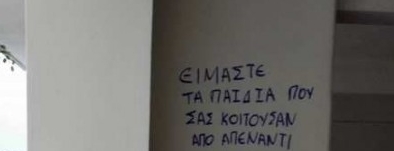 ΕΙΜΑΣΤΕ
ΤΑ ΠΑΙΔΙΑ ΠΟΥ
ΣΑΣ ΚΟΙΤΟΥΣΑΝ
ΑΠΟ ΑΠΕΝΑΝΤΙ